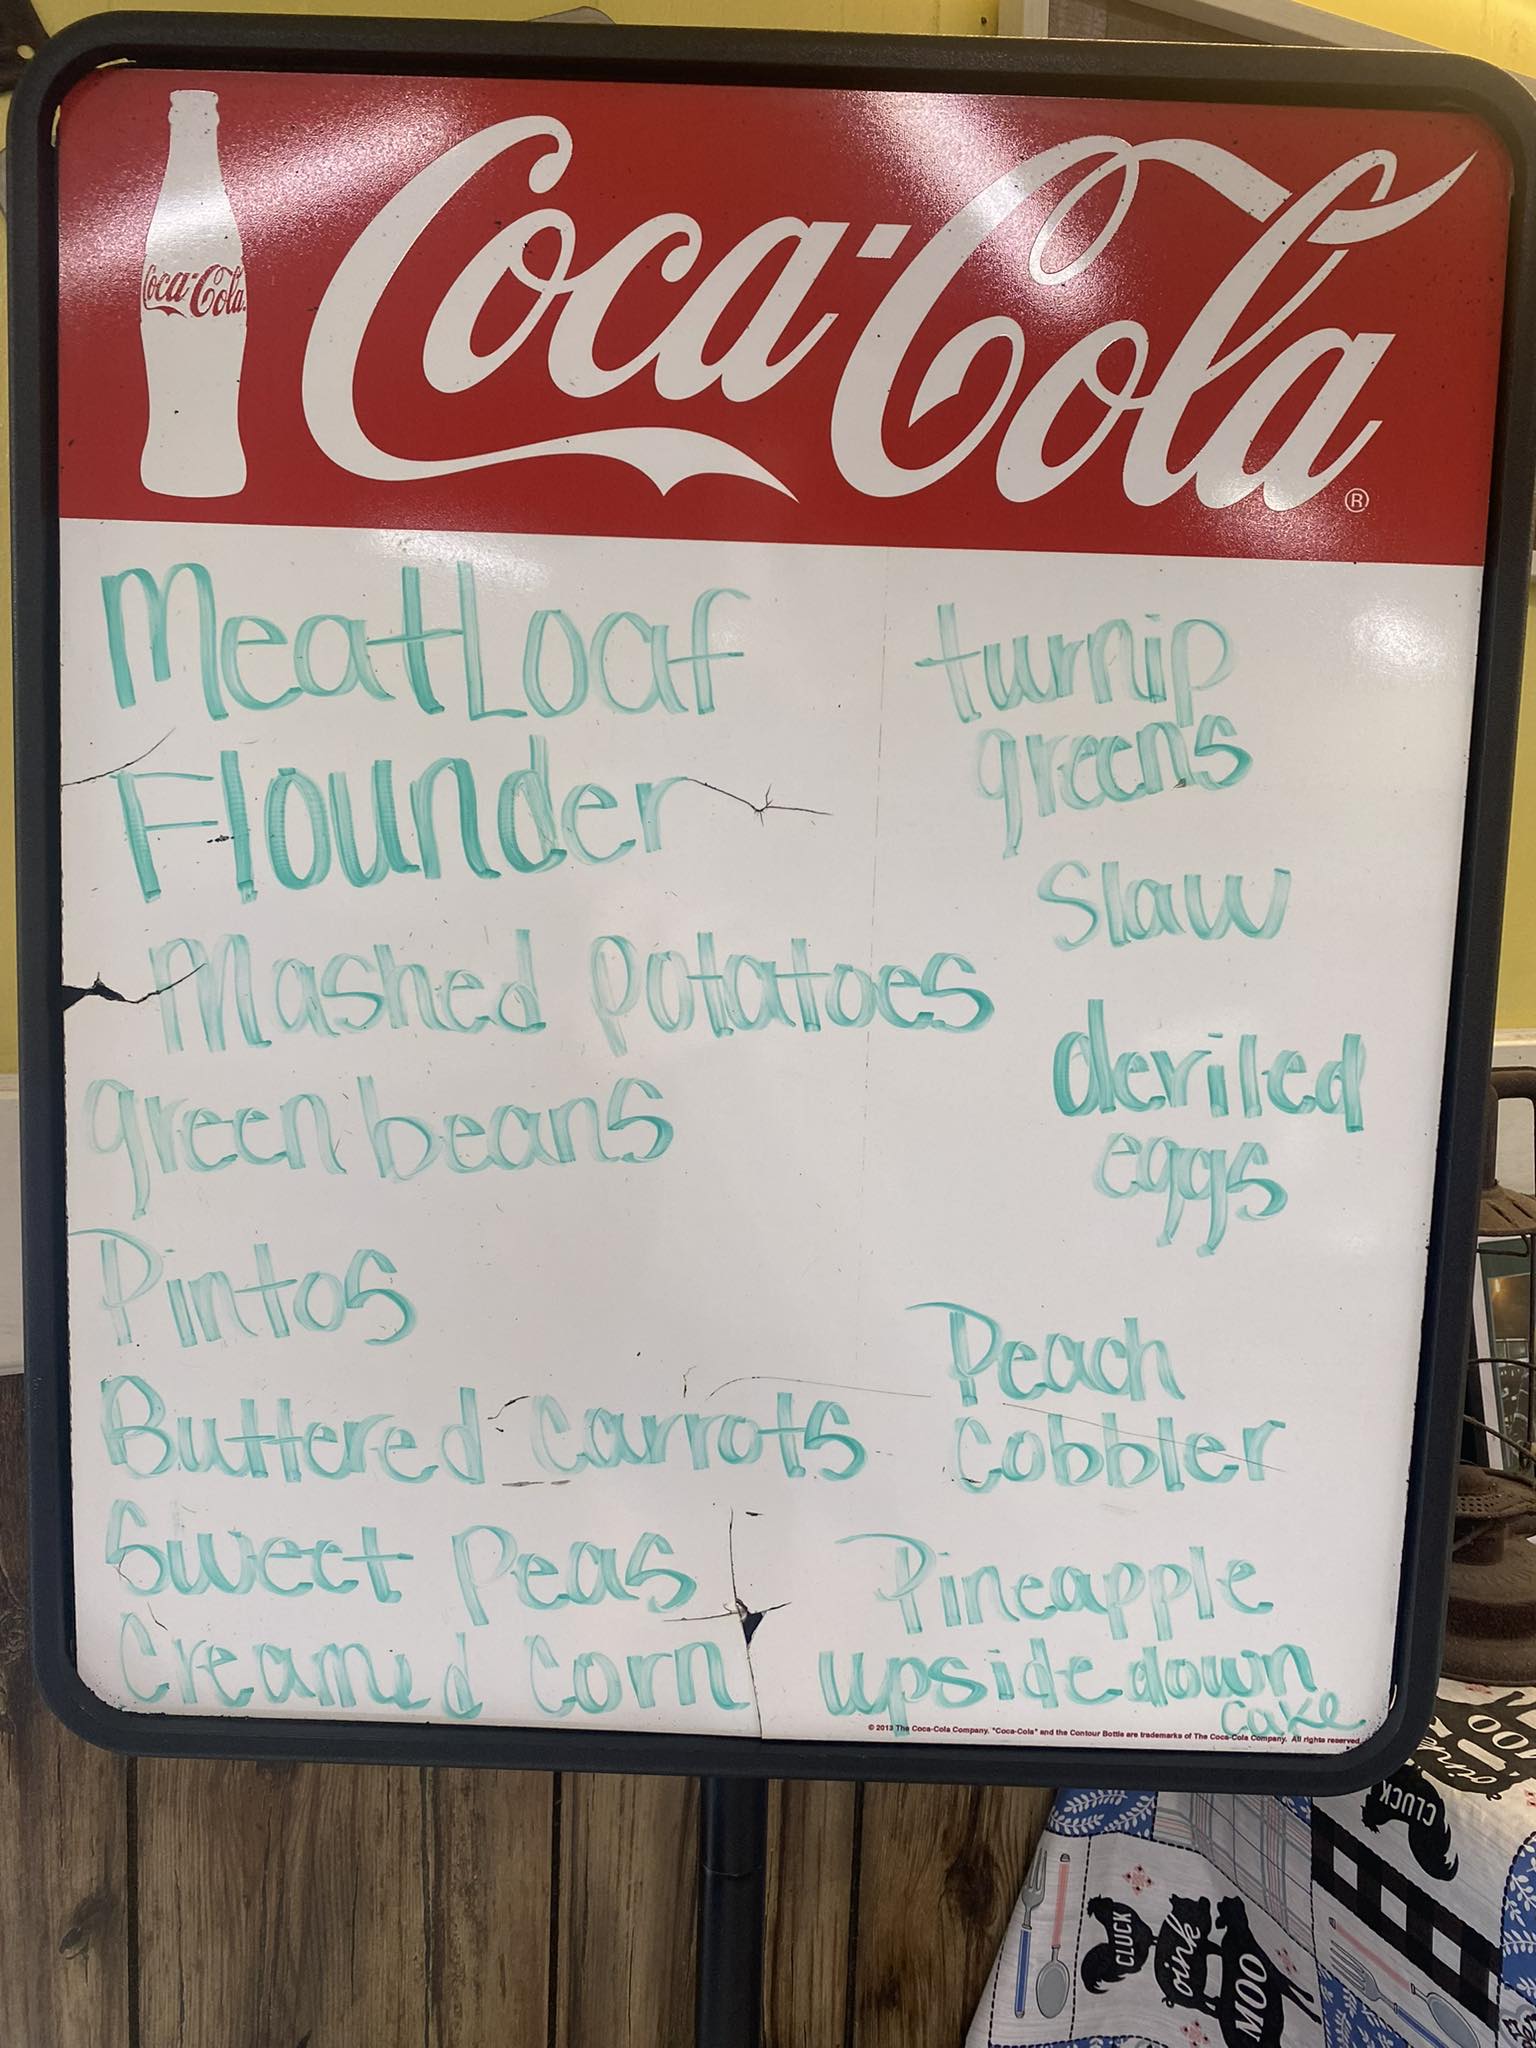 Coca-Cola
Coca-Cola ®
MeatLoaf
Flounder
Mashed potatoes
green beans
Pintos
Buttered carrots
Sweet Peas
Creamed corn
turnip
greens
slaw
deviled
eggs
Peach
cobbler
Pineapple
upside down
cake
© 2013 The Coca-Cola Company. "Coca-Cola" and the Contour Bottle are trademarks of The Coca-Cola Company. All rights reserved.
CLUCK
oink
MOO
CLUCK
oink
MOO